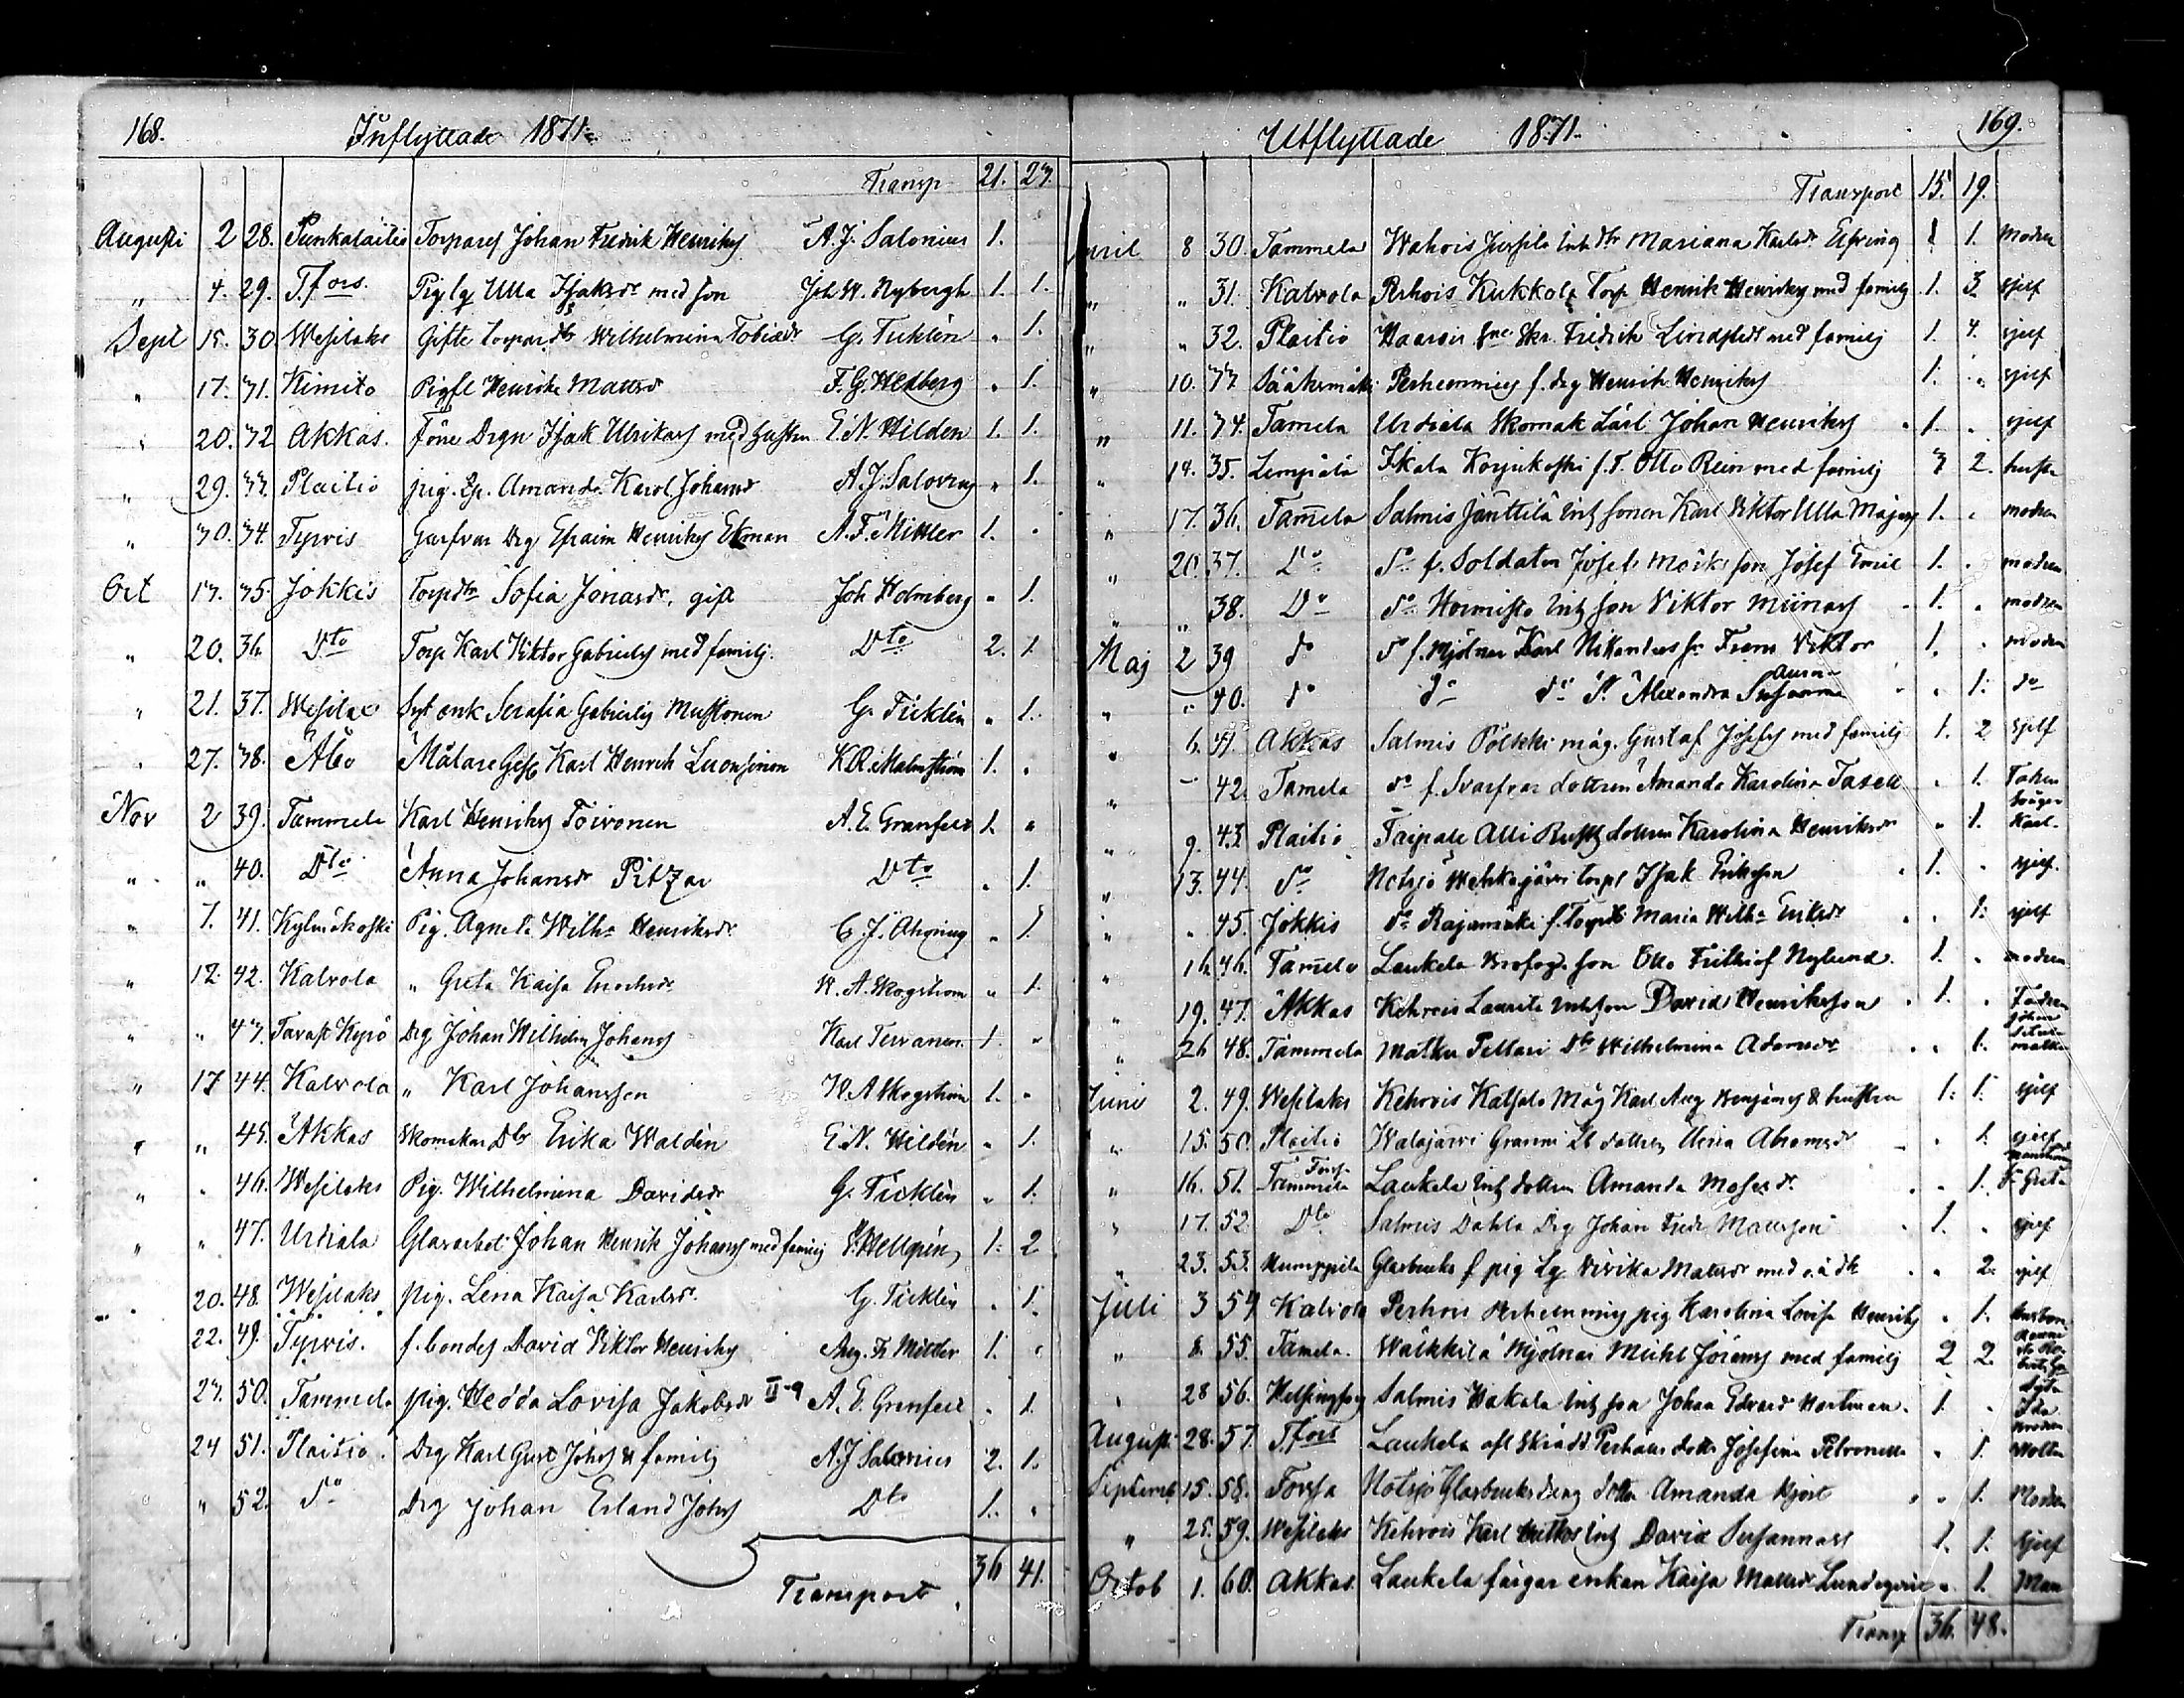 168. Inflyttade 1871.
Transp 21. 23.
Augusti 2 28. Punkalaitio Torpares Johan Fredrik Henriks A. J. Salonius 1.
" 4. 29. Tfors. Pig lg Ulla Isaksdr med son Joh W. Nybergh 1. 1.
Sept 15. 30. Wesilaks Gifte torpardtr Wilhelmina Tobiasdr G. Ticklén " 1.
" 17. 31. Kimito Henrika Mattsdr F. G. Hedberg " 1.
" 20. 32 Akkas. Isak Ulrikass med hustru E. N. Hildén 1. 1.
" 29. 33. Plaitio pig. Amanda Karol. Johansdr A. J. Salovius " 1.
" 30. 34. Tyrvis Garfvar Drg Efraim Henriks Ekman A. F. Mittler 1. "
Oct 13. 35. Jokkis Torpdtr Sofia Jonasdr, gift Joh Holmberg " 1.
" 20. 36 Dto Torp Karl Viktor Gabriels med familj. Dto 2. 1.
" 21. 37. Wesilax enk Serafia Gabriels Mustonen G. Ticklén " 1.
" 27. 38. Åbo Målare Ges Karl Henrik K. R. Malmström 1. "
Nov 2 39. Tammela Karl Henriks Toivonen A. E. Granfelt 1. "
" " 40. Dto Anna Johansdr Pitzar Dto " 1.
" 7. 41. Kylmäkoski Pig. Agneta Wilha Henriksdr. " 1.
" 12 42. Kalvola " Greta Kaisa Enochsdr W. A. Skogström " 1.
" " 43. Tavast Kyrö Drg Johan Wilhelm Johans Karl Tervanen 1. "
" 17 44. Kalvola " Karl Johansson W. A Skogström 1. "
" " 45. Akkas Skomakar Dtr Erika Waldén E. N. Hildén " 1.
" " 46. Wesilaks Pig. Wilhelmina Davidsdr G. Ticklén " 1.
" " 47. Urdiala Glasarbet Johan Henrik Johans med familj 1. 2
" 20. 48. Wesilaks pig. Lena Kaisa Karlsdr. G. Ticklén " 1.
22. 49. Tyrvis. f. bondes David Viktor Henriks Aug. Fr Mittler 1. "
23. 50. Tammela pig. Hedda Lovisa Jakobsdr II-9 A. E. Granfelt " 1.
24 51. Plaitio. Drg Karl Gust Johs & familj A. J Salovius 2. 1.
" 52. Do Drg Johan Erland Johs Dto 1. "
Transport 36 41.
Utflyttade 1871. 169.
Transport 15. 19.
April 8 30. Tammela Wahois Jussila Inh dtr Mariana Karlsdr Elfving 1. Modren
" " 31. Kalvola Perhois Kukkola Torp Henrik Henriks med familj 1. 3 sjelf
" " 32. Plaitio Haarois Fredrik Lindstedt med familj 1. 4. sjelf
" 10. 33. Sääksmäki Perheenmies f. drg Henrik Henriks 1. " sjelf
" 11. 34. Tamela Urdiala Skomak Lärl Johan Henriks 1. " sjelf
" 14. 35. Lempäälä Ikala Korjukoski f. T. Otto Rein med familj 3 2. hustr
" 17. 36. Tamela Salmis Janttilä Inh sonen Karl Viktor Ulla Majas 1. " modren
" 20. 37. Do Do f. Soldaten Josef Mörks son Josef Emil 1. " modren
" " 38. Do Do Hormisto Inh son Viktor Miinas 1. " modren
Maj 2 39 do do f. Mjölnar Karl Nikanders sn Frans Viktor 1. " modren
" " 40. do do do Alexandra Susanna " 1. do
" 6. 41. Akkas Salmis Pölkki måg. Gustaf Josefs med familj 1. 2 sjelf
" - 42. Tamela do f. Svarfvar dottren Amanda Karolina Tasell " 1.
" 9. 43. Plaitio Taipale Alli Rusth dottren Karolina Henriksdr " 1. Karl.
" 13. 44. Do Notsjö torps Isak Eriksson 1. " sjelf.
" " 45. Jokkis do Rajamäki f. Torpdtr Maria Wilha Eriksdr " 1. sjelf
" 16. 46. Tamela Laukela son Otto Frithiof Nylund 1. " modren
" 19. 47. Akkas Kehrois Laurila Inh son David Henriksson 1. " Fadren
" 26 48. Tammela Matku Pellari Dtr Wilhelmina Adamsdr " 1.
Juni 2. 49. Wesilaks Kehrois Kalsola Måg Karl Aug Benjamins & hustru 1. 1. sjelf
" 15. 50. Plaitio Walajärvi Granni dottren Ulrica Abramsdr " 1. sjelf
" 16. 51. Tammela Laukela Inh dottren Amanda Mosesdr. " 1. Greta
" 17. 52 Dto Salmis Dahla Drg Johan Fredr Mattsson 1. " sjelf
" 23. 53. Humppila Glasbruks f pig Lg Vivika Mattsdr med o. ä dtr " 2. sjelf
Juli 3 54 Kalvola Perhois Perheenmies pig Karolina Lovisa Henriks " 1.
" 8. 55. Tamela. Wäkkilä Mjölnar med familj 2 2.
" 28 56. Helsingfors Salmis Hakala Inh son Johan Edvard Hartman. 1. "
August. 28. 57. Tfors Laukela afl Skrädd Perhais dottr Josefina Petronella " 1. Modren
Septemb 15. 58. Forssa Notsjö Glasbruks dreng dottr Amanda Hjort " 1. Modren
" 25. 59. Wesilaks Kehrois Karl Inh David Susannass 1. 1. sjelf
Octob 1. 60. Akkas. Laukela färgar enkan Kaisa Mattsdr " 1. Man
Transp 36. 48.